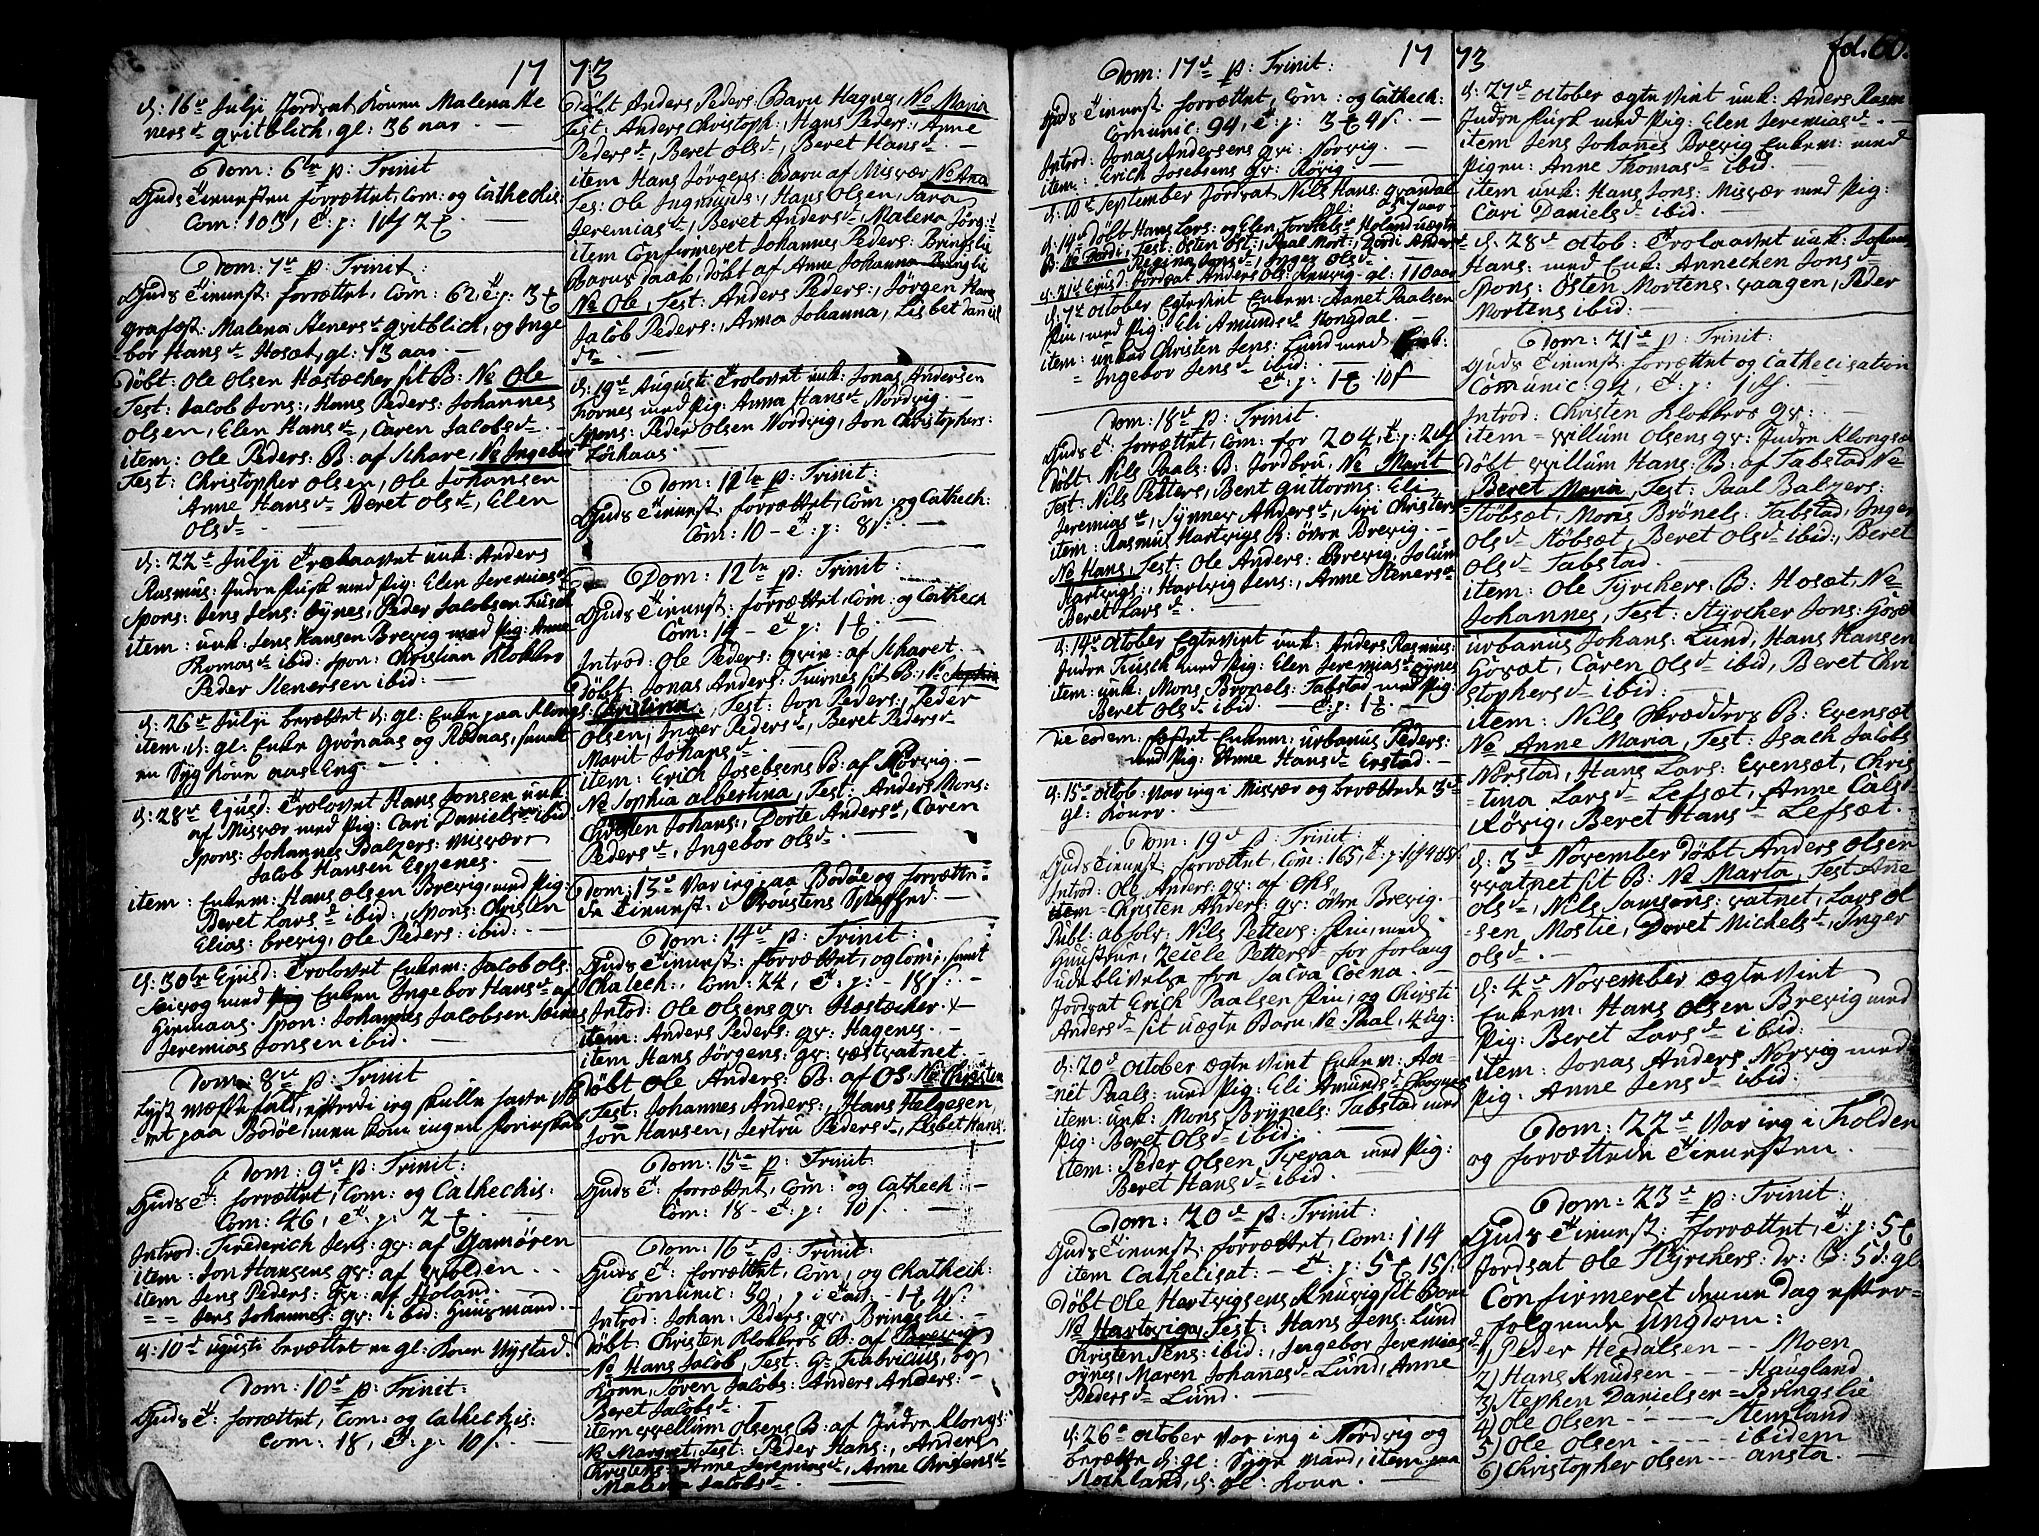 17 73
d: 16de Julji Jordsat Konen Malena Ste
ners dr gritblich, gl: 36 aar. —
Dom: 6te p: Trinit
Guds Tienesten forrættet, Com: og Cathechis:
Com: 103,
Dom: 7de p: Trinit:
Guds Tienest: forrættet, Com: 62
grafæst: Malena Steners dr gritblich, og Inge
bor Hans dr Hosæt, gl: 13 aar. —
Døbt: Ole Olsen Hæstæcher sit B: No Ole
Test: Jacob Jons:, Hans Peders: Johannes
Olsen, Elen Hans dr, Caren Jacobs dr —
item: Ole Peders: B: af Skare, No Ingebor
Test: Christopher Olsen, Ole Johansen
Anne Hans dr Beret Ols dr, Elen
Ols dr —
d: 22de Julji Trolovet unk: Anders
Rasmus: Indre med Pig: Elen Jeremias dr
Spons: Jens Jens: Øynes, Peder Jacobsen
item: unk: Jens Hansen Brevig med Pig: Anne
Thomas dr ibid: Spon: Christian Klokkers
Peder Stenersen ibid: —
d: 26de Julji berættet d: gl: Enke paa Klongs:
item d: gl: Enke Grønaas og Rødnas, samt
en Syg Kone aas-Eng —
d: 28de Ejusd: Trolovet Hans Jonsen unk
af Misvær med Pig: Cari Daniels dr ibid
Spons: Johannes Balzers: Misvær
Jacob Hansen Espenes. —
item: Enkem: Hans Olsen Brevig, med Pig:
Beret Lars dr ibid:, Spons: Christen
Elias: brevig, Ole Peders: ibid: —
d: 30te Ejusd: Trolovet Enkem: Jacob Ols:
Seivog med Enken Ingebor Hans dr af
Spon: Johannes Jacobsen
Jeremias Jonsen ibid. —
Dom: 8de p: Trinit
Lyst Mæsse fald, efterdi ieg skulle
paa Bodøe, men kom ingen
Dom: 9de p: Trinit:
Guds T: forrættet, Com: og Cathechis:
Com: 46,
Introd: Frederich Jens: qv: af
item: Jon Hansens qv: af Volden
item Jens Peders: qv: af Høland. —
Jens Johannes: qv: ibid: Huusmand. —
d: 10de ugusti berættet en gl: Kone Nystad.
Dom: 10de p: Trinit:
Guds T: forrættet, Com: og Cathechis:
Com: 18,
Døbt Anders Peders: Barn Hagnes, No Maria
Test: Anders Christoph:, Hans Peders:, Anne
Peders dr, Beret Ols dr, Beret Hans dr —
item Hans Jørgens: Barn af Misvær No Ana
Tes: Ole Ingmunds:, Hans Olsen, Sara
Jeremias dr, Beret Anders dr, Malena Jørg:
item Confirmeret Johannes Peders: Bringslie
Barns Daab, døbt af Anne Johanna Bringslie
No Ole, Test: Anders Peders:, Jørgen Hans
Jacob Peders:, Anna Johanna, Lisbet Daniel
dr —
d: 19de August: Trolovet unk: Jonas Andersen
med Pig: Anna Hans dr, Nordvig. —
Spons: Peder Olsen Nordvig, Jon Christophers:
Dom: 12te p: Trinit:
Guds Tienest: forrættet, Com: og Cathech:
Com: 10 —
Dom: 12te p: Trinit:
Guds Tienest: forrættet, Com: og Cathech
Com: 14 —
Introd: Ole Peders: qvin: af Skaret. —
Døbt: Jonas Anders: sit B: No Sophia
Christina, Test: Jon Peders:, Peder
Olsen, Inger Peders dr, Beret Peders dr
Marit Johans dr —
item: Erich Josebsens B: af Rørvig. —
No Sophia albertina, Test: Anders Mons:
Christen Johans:, Dorte Anders dr, Caren
Peders dr, Ingebor Ols dr —
Dom: 13de var ieg paa Bodøe og forrætte-
de Tienest: i Provstens —
Dom: 14de p: Trinit:
Guds Tienest: forrættet, og Com:, samt
Chatech:, Com: 24,
Introd: Ole Olsens qv: Hæstæcher
item: Anders Peders: qv: Hagenes. —
item Hans Jørgens: qv: væstvatnet. —
Døbt Ole Anders: B: af Os: No Christen
Test: Johannes Anders:, Hans Helgesen,
Jon Hansen, Sertru Peders dr, Lisbet Hans:
Dom: 15de p: Trinit:
Guds T: forrættet, Com: og Cathech: —
Com: 18 —
Dom: 16de p: Trinit:
Guds T: forrættet, Com, og Chatech:
Comunic: 50,
Introd: Johan: Peders: qv: Bringslie. —
Døbt: Christen Klokkers B: af Brevig
No Hans Jacob, Test: G: Fabricius, og
Kone, Søren Jacobs: Anders Anders:
Beret Jacobs dr
item Vellum Olsens B: af Indre Klongs:
No Margret, Test: Peder Hans:, Anders
Christens: Anne Jeremias dr, Anne Christens dr
Malena Jacobs dr —
fol. 60.
17 73
Dom: 17de p: Trinit:
Guds Tienest: forrættet, Com: og Cathech:
Comunic: 94,
Introd: Jonas Andersens qv: Norvig. —
item: Erich Josebsens qv: Rørvig —
d: 10de September Jordsat Nils Hans: grandal
gl: 25 aar —
d: 14de Døbt Hans Lars: og Elen Torkels dr Høland uægte
B: No Jordi, Test: Østen Øst:, Paal Mort:, Jordi Anders dr
Regina Jons dr, Inger Ols dr
d: 21de Ejusd: Jordsat Anders Ols: Knævig gl: 110 aar
d: 7de October Egtevint Enkem: Aanet Paalsen
med Pig: Eli Amunds dr Hongdal. —
item: unkar Christen Jens: Lund med Enk:
Ingebor Jens dr ibid:
Dom: 18de p: Trinit.
Guds T: forrættet, Com: for 204,
Døbt: Nils Paals: B: Jordbru, No Marit
Test: Nils Petters, Bent guttorms: Eli
Jeremias dr, Synnev Anders dr, Siri Christens
item: Rasmus Hartvigs B: øvre Brevig. —
No Hans, Test: Ole Anders: Brevig, Jocum
Hartvigs:, Hartvig Jens:, Anne Steners dr
Beret Lars dr —
d: 14de October Egtevint unk: Anders Rasmus:
Indre med Pig: Elen Jeremias dr øynes
item: unk: Mons Brønels: Tabstad med Pig:
Beret Ols dr ibid. —
Die eodem: fæstet Enkem: urbanus Peders:
med Pig: Anne Hans dr Erstad. —
d: 15de octob: var ieg i Misvær og berættede 3de
gl: Koner. —
Dom: 19de p: Trinit:
Guds Tienest: forrættet, Com: 165,
Introd: Ole Anders: qv: af Ohs
item = Christen Anders: qv: øvre Brevig. —
Publ: absolv: Nils Petters: med
Hustrue, Zeiele Petters dr for forlang
udeblivelse fra Sacra Coena. —
Jordsat Erich Paalsen og Christi
Anders dr sit uægte Barn No Paal, 4 ug:
d: 20de october ægtevint Enkem: Aa-
net Paals: med Pig: Eli Amunds dr
item: unk: Mons Brynels: Tabstad med
Pig: Beret Ols dr ibid: —
item: Peder Olsen Tveraa med Pig:
Beret Hans dr ibid. —
Dom: 20de p: Trinit:
Guds Tienest: forrættet, Com: 114
item Cathecisat: —
Døbt Ole Hartvigsens Knævig sit Barn
No Hartviga, Test: Hans Jens: Lund
Christen Jens: ibid:, Ingebor Jeremias dr
øynes, Maren Johannes dr Lund, Anne
Peders dr Lund. —
d: 26de october var ieg i Nordvig og
berætte d: gl: Syge mand, item paa
Stochland, d: gl: Kone.
d: 27de october ægtevint unk: Anders Rasm
Indre med Pig: Elen Jeremias dr —
item Jens Johanes Brevig Enkem: med
Pigen: Anne Thomas dr ibid.
item unk: Hans Jons: Misvær med Pig:
Cari Daniels dr ibid. —
d: 28de octob: Trolovet unk: Johan
Hans: med Enk: Annechen Jons dr
Spons: Østen Mortens: vaagen, Peder
Mortens ibid: —
Dom: 21de p: Trinit:
Guds Tienest: forrættet og Cathecisation
Comunic: 92,
Introd: Christen Klokkers qv: —
item = villum Olsens qv: Indre Klongsæt
Døbt villum Hans: B: af Tabstad No
Beret Maria, Test: Paal Balzers:
Støbsæt, Mons Brønels: Tabstad, Inger
Ols dr Støbsæt, Beret Ols dr ibid:, Beret
Ols dr Tabstad.
item: Ole Tyrchers: B: Hosæt, No
Johannes, Test: Styrcher Jons: Gosæt
urbanus Johans: Lund, Hans Hansen
Gosæt, Caren Ols dr ibid, Beret Chri
stophers dr ibid: —
item: Nils Skrædders B: Evensæt
No Anne Maria, Test: Isach Jacobs
Nørstad, Hans Lars: Evensæt, Chris
tina Lars dr Lefsæt, Anne Cals dr
Rørvig, Beret Hans dr Lefsæt. —
d: 3de November døbt Anders Olsen
vatnet sit B: No Marta, Test Ane
Ols dr, Nils Samsons: vatnet, Lars Ol
sen Mostie, Doret Michels dr, Inger
ols dr —
d: 4de November ægtevint
Enkem: Hans Olsen Brevig med
Pig: Beret Lars dr ibid:
item: Jonas Anders Norvig med
Pig: Anne Jens dr ibid:
Dom: 22de var ieg i Folden
og forrættede Tienesten. —
Dom: 23de p: Trinit:
Guds Tienest: forrættet,
Jordsat Ole Styrchers: dr: B: 5 d: gl:
Confirmeret denne Dag efter-
følgende Ungdom:
1) Peder Herdalsen -- Moen
2) Hans Knudsen -- Haugland
3) Stephen Danielsen = Bringslie
4) Ole Olsen ---- Stensland
5) Ole Olsen ---- ibidem
6) Christopher Olsen --- ansta. —